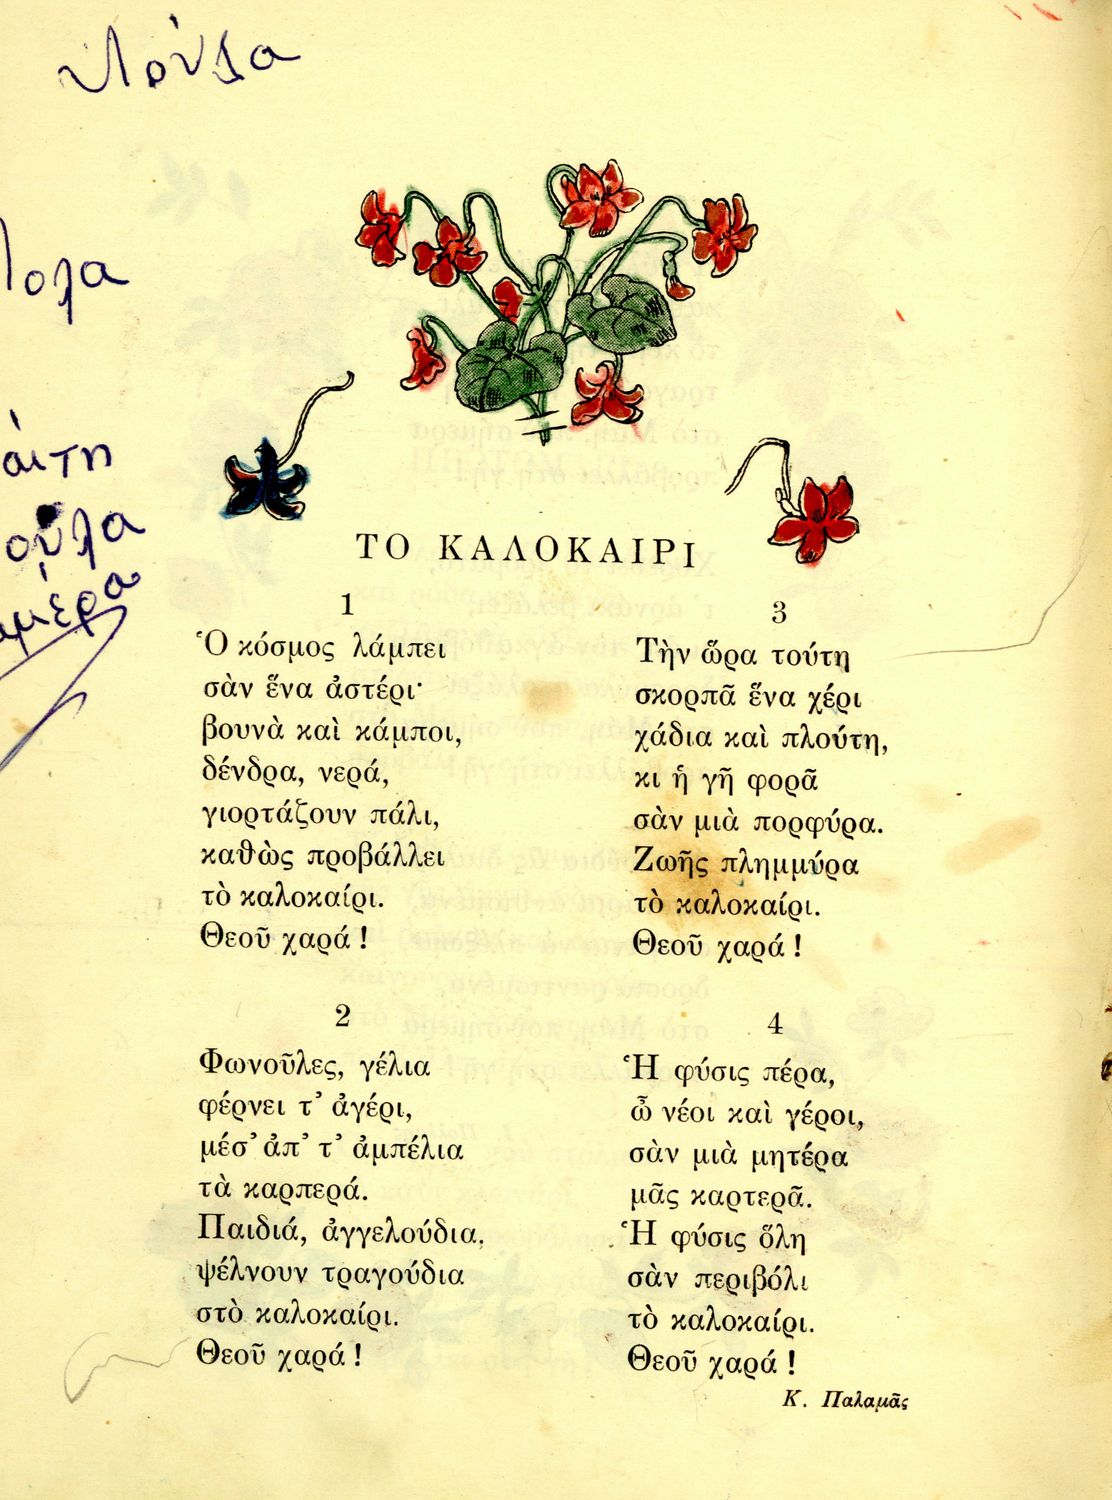 Λούλα
Λολα
ούλα
ΤΟ ΚΑΛΟΚΑΙΡΙ
1
Ὁ κόσμος λάμπει
σὰν ἕνα ἀστέρι·
βουνὰ καὶ κάμποι,
δένδρα, νερά,
γιορτάζουν πάλι,
καθὼς προβάλλει
τὸ καλοκαίρι.
Θεοῦ χαρά !
2
Φωνοῦλες, γέλια
φέρνει τ' ἀγέρι,
μέσ' ἀπ' τ' ἀμπέλια
τὰ καρπερά.
Παιδιά, ἀγγελούδια,
ψέλνουν τραγούδια
στὸ καλοκαίρι.
Θεοῦ χαρά !
3
Τὴν ὥρα τούτη
σκορπᾶ ἕνα χέρι
χάδια καὶ πλούτη,
κι ἡ γῆ φορᾶ
σὰν μιὰ πορφύρα.
Ζωῆς πλημμύρα
τὸ καλοκαίρι.
Θεοῦ χαρά !
4
Ἡ φύσις πέρα,
ὦ νέοι καὶ γέροι,
σὰν μιὰ μητέρα
μᾶς καρτερᾶ.
Ἡ φύσις ὅλη
σὰν περιβόλι
τὸ καλοκαίρι.
Θεοῦ χαρά !
Κ. Παλαμᾶς